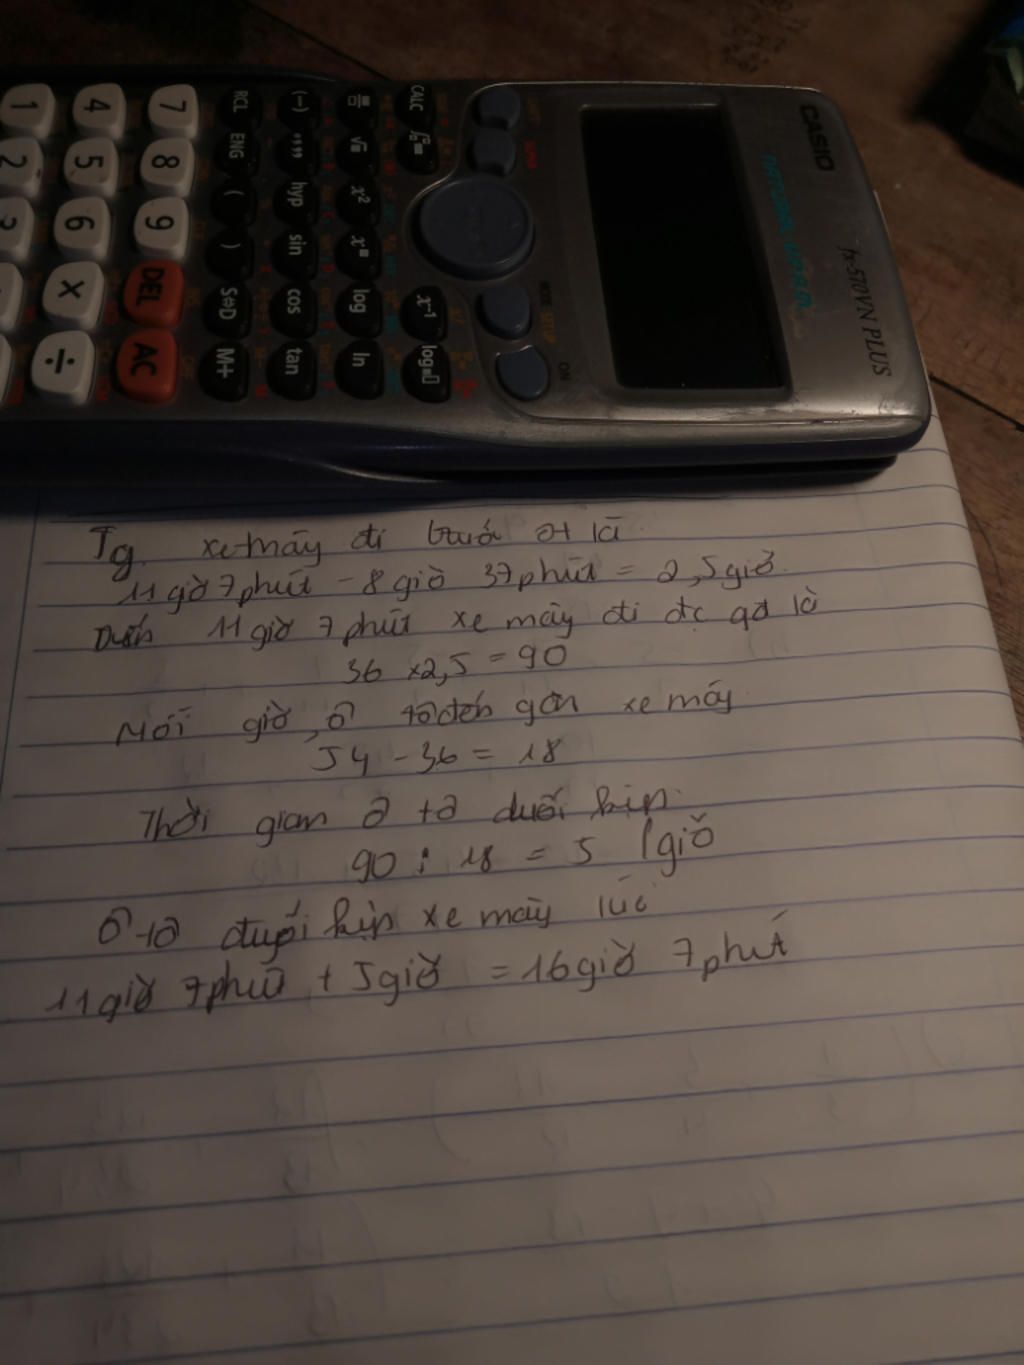 CASIO
fx-570VN PLUS
NATURAL-V.P.A.M.
ON
CALC
x⁻¹
log
√
x²
log
ln
(-)
hyp
sin
cos
tan
RCL
ENG
(
)
S⇔D
M+
7
8
9
DEL
AC
4
5
6
×
÷
1
2
Tg xe máy đi trước ôt là
11 giờ 7 phút - 8 giờ 37 phút = 2,5 giờ
Đến 11 giờ 7 phút xe máy đi đc qđ là
36 × 2,5 = 90
Mỗi giờ, ô tô đến gần xe máy
54 - 36 = 18
Thời gian ô tô đuổi kịp
90 : 18 = 5 (giờ
Ô tô đuổi kịp xe máy lúc
11 giờ 7 phút + 5 giờ = 16 giờ 7 phút